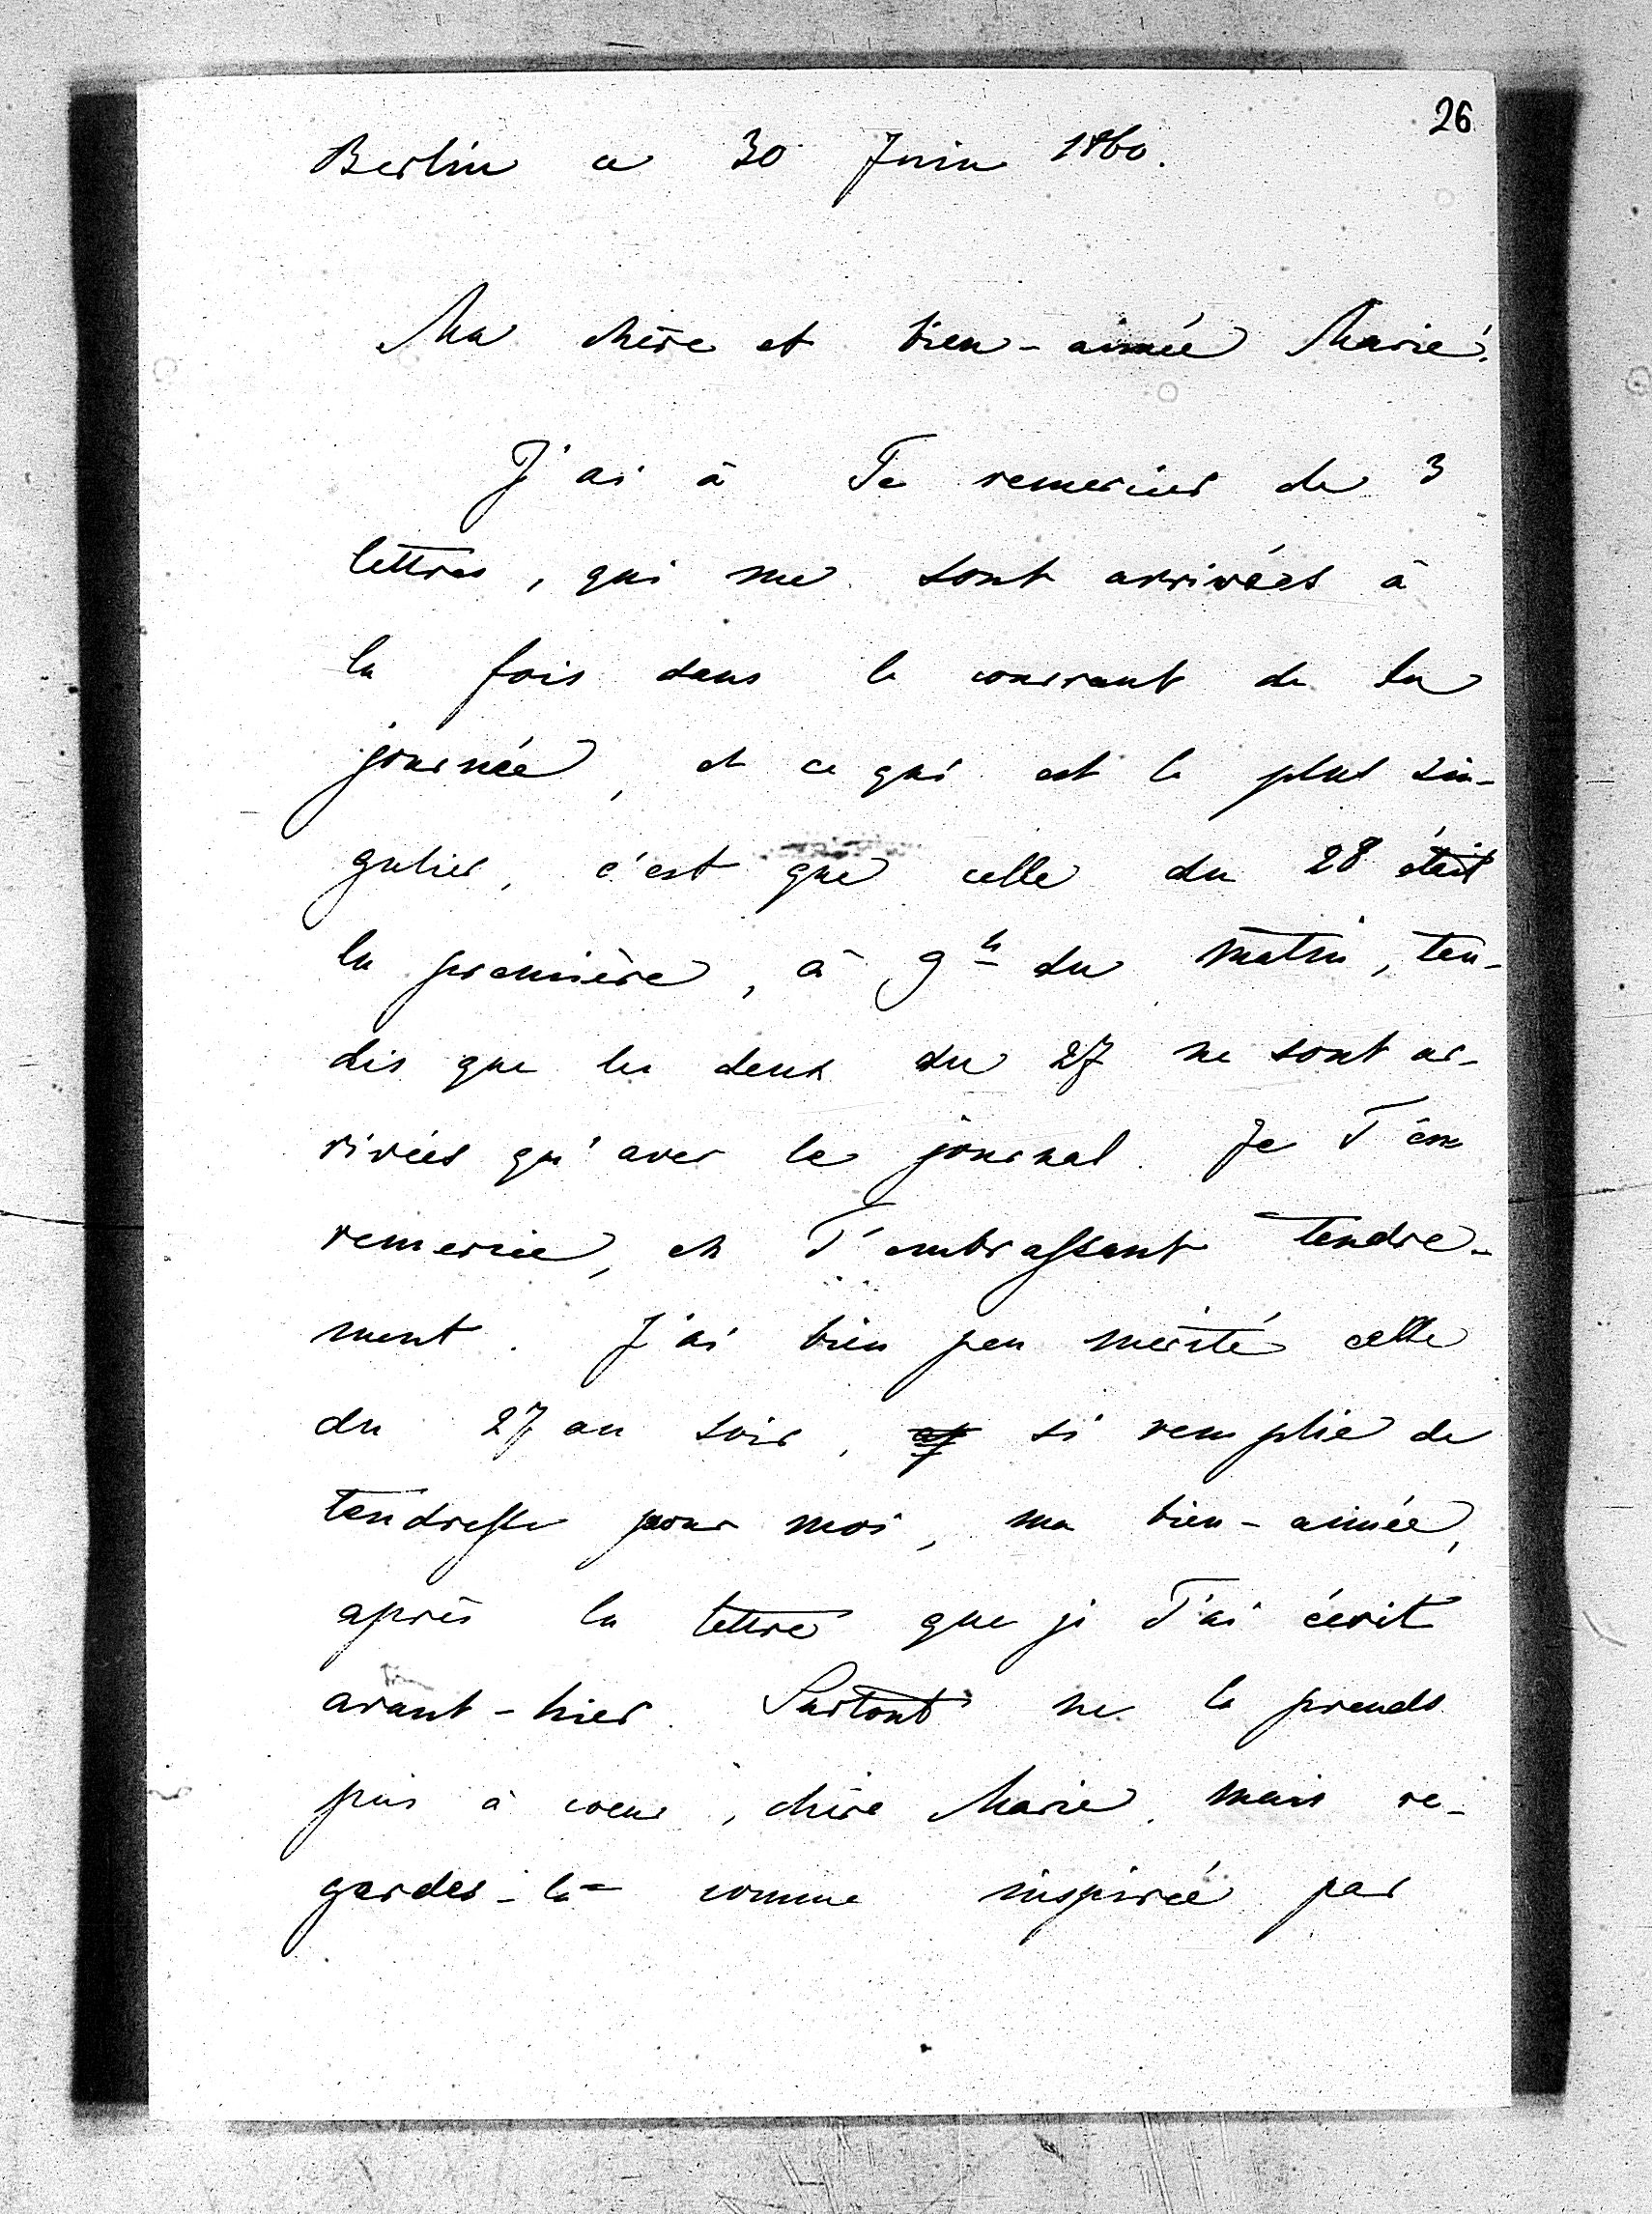 26
Berlin ce 30 Juin 1860.
Ma chère et bien-aimée Marie!
J'ai à Te remercier de 3
lettres, qui me sont arrivées à
la fois dans le courant de la
journée, et ce qui est le plus sin-
gulier, c'est que celle du 28 était
la première, à 9h du matin, tan-
dis que les deux du 27 ne sont ar-
rivées qu'avec le journal. Je T'en
remercie, en T'embrassant tendre-
ment. J'ai bien peu mérité celle
du 27 au soir, si remplie de
tendresse pour moi, ma bien-aimée,
après la lettre que je T'ai écrit
avant-hier. Surtout ne la prends
pas à coeur, chère Marie, mais re-
gardes-la comme inspirée par